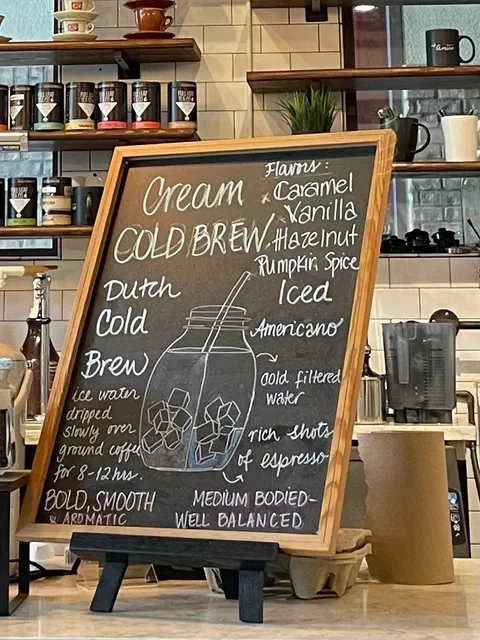 Cream
COLD BREW
Flavors:
Caramel
Vanilla
Hazelnut
Pumpkin Spice
Dutch
Cold
Brew
ice water
dripped
slowly over
ground coffee
for 8-12 hrs.
BOLD, SMOOTH
& AROMATIC
Iced
Americano
cold filtered
water
rich shots
of espresso
MEDIUM BODIED-
WELL BALANCED